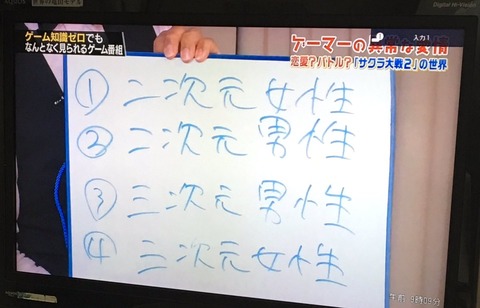 AQUOS
ゲーム知識ゼロでも
なんとなく見られるゲーム番組
入力1
ゲーマーの異常な愛情
恋愛?バトル?「サクラ大戦2」の世界
① 二次元 女性
② 二次元 男性
③ 三次元 男性
④ 三次元 女性
午前 9時09分